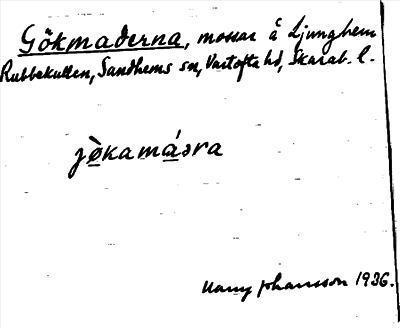 Gökmaderna, mossar å Ljunghem
Rubbekullen, Sandhems sn, Vartofta hd, Skarab. l.
jö̀kamáəra
Harry Johansson 1936.